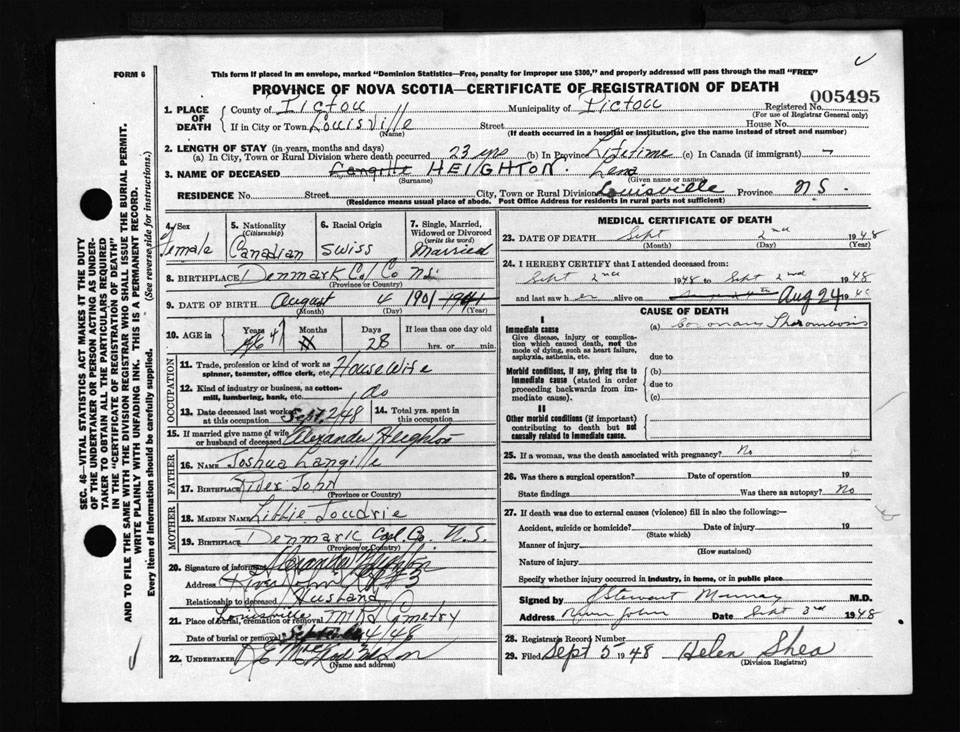 FORM 6
This form if placed in an envelope, marked "Dominion Statistics—Free, penalty for improper use $300," and properly addressed will pass through the mail "FREE"
PROVINCE OF NOVA SCOTIA—CERTIFICATE OF REGISTRATION OF DEATH
005495
1. PLACE OF DEATH County of Pictou Municipality of Pictou Registered No.
(For use of Registrar General only)
If in City or Town Louisville Street House No.
(Name) (If death occurred in a hospital or institution, give the name instead of street and number)
2. LENGTH OF STAY (in years, months and days)
(a) In City, Town or Rural Division where death occurred 23 yrs (b) In Province Lifetime (c) In Canada (if immigrant) –
3. NAME OF DECEASED Langille HEIGHTON. Lena
(Surname) (Given name or names)
RESIDENCE No. Street City, Town or Rural Division Louisville Province N S.
(Residence means usual place of abode. Post Office Address for residents in rural parts not sufficient)
4. Sex Female
5. Nationality (Citizenship) Canadian
6. Racial Origin Swiss
7. Single, Married, Widowed or Divorced (write the word) Married
8. BIRTHPLACE Denmark Col Co NS.
(Province or Country)
9. DATE OF BIRTH August 4 1901
(Month) (Day) (Year)
10. AGE in Years 47 Months Days 28 If less than one day old hrs. or min.
OCCUPATION
11. Trade, profession or kind of work as spinner, teamster, office clerk, etc. House Wife
12. Kind of industry or business, as cotton-mill, lumbering, bank, etc.
13. Date deceased last worked at this occupation Sept, 2/48
14. Total yrs. spent in this occupation
15. If married give name of wife or husband of deceased Alexander Heighton
FATHER
16. NAME Joshua Langille
17. BIRTHPLACE River John
(Province or Country)
MOTHER
18. MAIDEN NAME Libbie Joudrie
19. BIRTHPLACE Denmark Col. Co. N.S.
(Province or Country)
20. Signature of informant Alexander Heighton
Address River John RR # 3
Relationship to deceased Husband
21. Place of burial, cremation or removal Louisville
Date of burial or removal September 4/48
22. UNDERTAKER
(Name and address)
MEDICAL CERTIFICATE OF DEATH
23. DATE OF DEATH Sept 2nd 1948
(Month) (Day) (Year)
24. I HEREBY CERTIFY that I attended deceased from:
Sept 2nd 1948 to Sept 2nd 1948
and last saw her alive on Aug 24 19
CAUSE OF DEATH
I
Immediate cause
Give disease, injury or complication which caused death, not the mode of dying, such as heart failure, asphyxia, asthenia, etc.
(a) Coronary Thrombosis
due to
Morbid conditions, if any, giving rise to immediate cause (stated in order proceeding backwards from immediate cause).
(b)
due to
(c)
II
Other morbid conditions (if important) contributing to death but not causally related to immediate cause.
25. If a woman, was the death associated with pregnancy? No
26. Was there a surgical operation? Date of operation 19
State findings Was there an autopsy? No
27. If death was due to external causes (violence) fill in also the following:—
Accident, suicide or homicide? Date of injury 19
(State which)
Manner of injury
(How sustained)
Nature of injury
Specify whether injury occurred in industry, in home, or in public place
Signed by J Stewart Murray M.D.
Address River John Date Sept 3rd 1948
28. Registrar's Record Number
29. Filed Sept 5 1948 Helen Shea
(Division Registrar)
SEC. 46—VITAL STATISTICS ACT MAKES IT THE DUTY
OF THE UNDERTAKER OR PERSON ACTING AS UNDER-
TAKER TO OBTAIN ALL THE PARTICULARS REQUIRED
IN THE "CERTIFICATE OF REGISTRATION OF DEATH"
AND TO FILE THE SAME WITH THE DIVISION REGISTRAR WHO SHALL ISSUE THE BURIAL PERMIT.
WRITE PLAINLY WITH UNFADING INK. THIS IS A PERMANENT RECORD.
Every item of information should be carefully supplied. (See reverse side for instructions.)